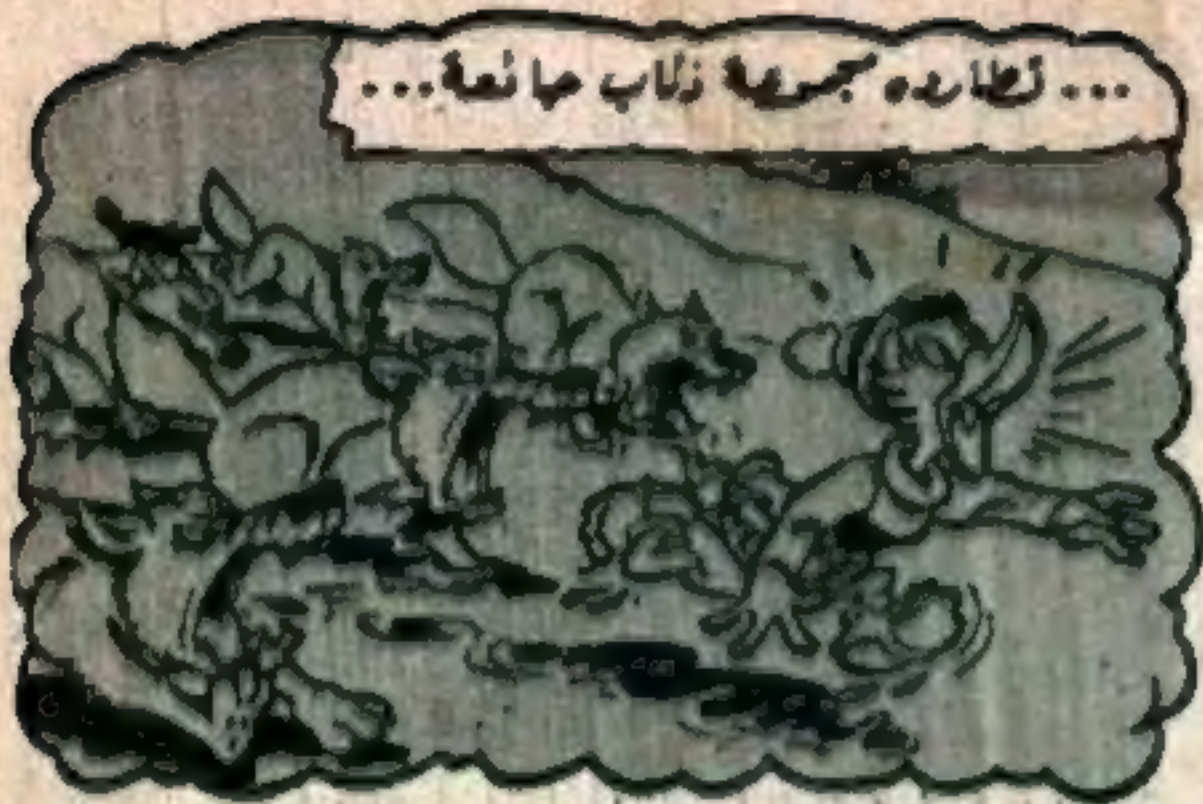 ... تطارده مجموعة ذئاب جائعة...